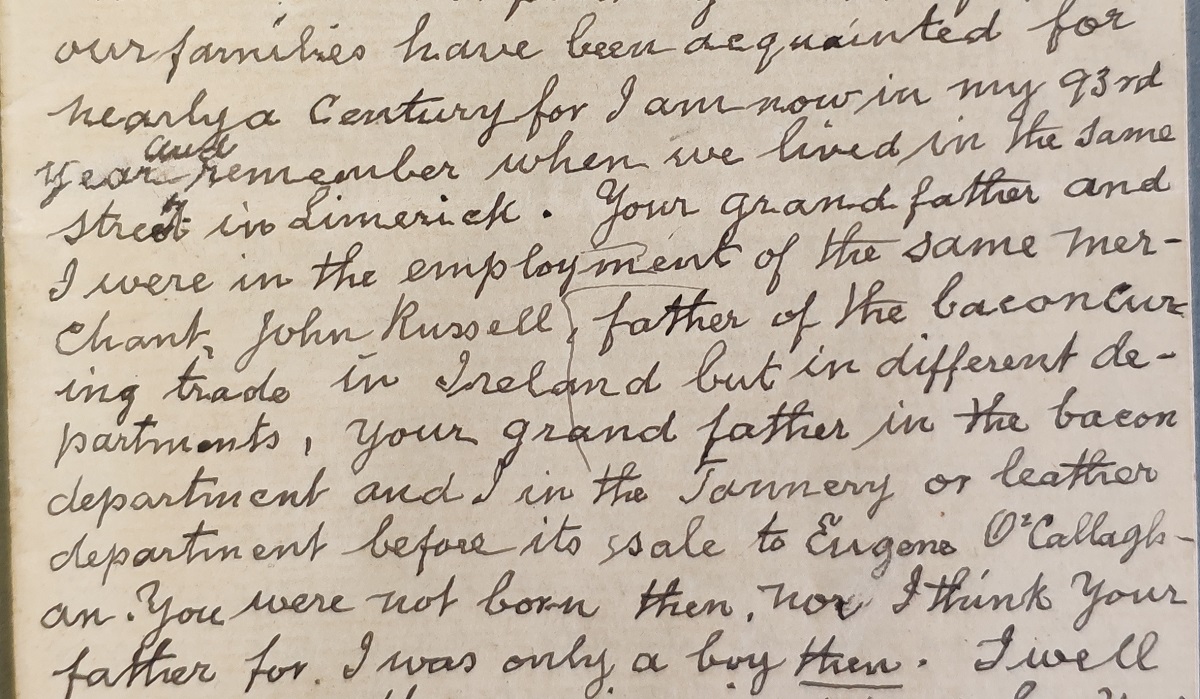 our families have been acquainted for
nearly a Century for I am now in my 93rd
year and remember when we lived in the same
street in Limerick. Your grand father and
I were in the employment of the same mer-
chant, John Russell, father of the bacon cur-
ing trade in Ireland but in different de-
partments, your grand father in the bacon
department and I in the Tannery or leather
department before its sale to Eugene O'Callagh-
an. You were not born then, nor I think Your
father for I was only a boy then. I well